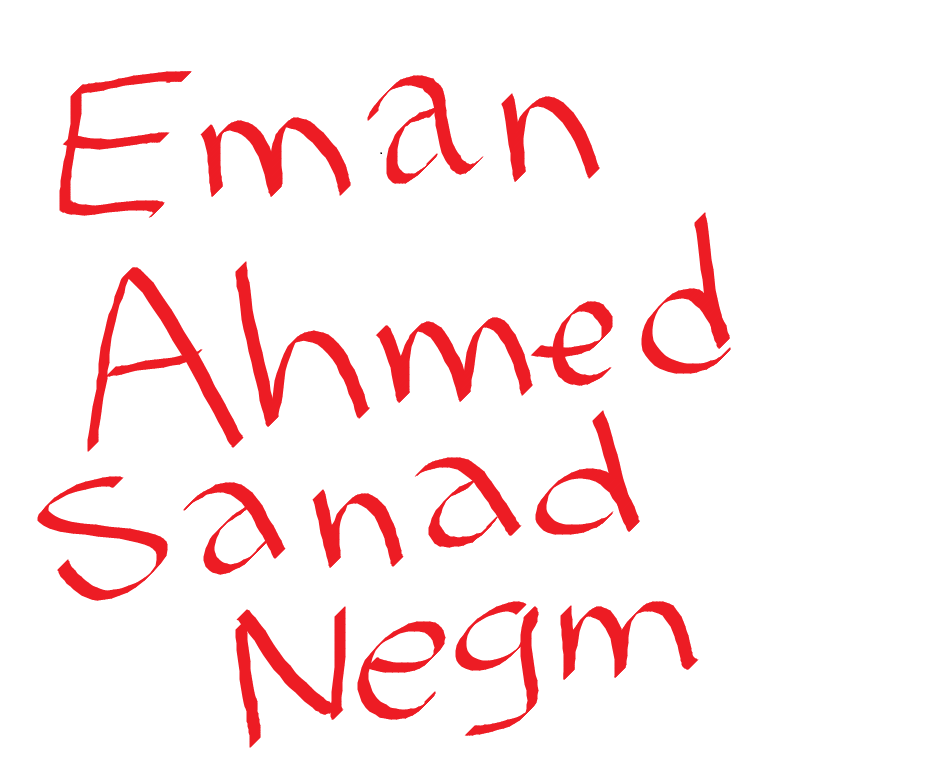 Eman
Ahmed
Sanad
Negm